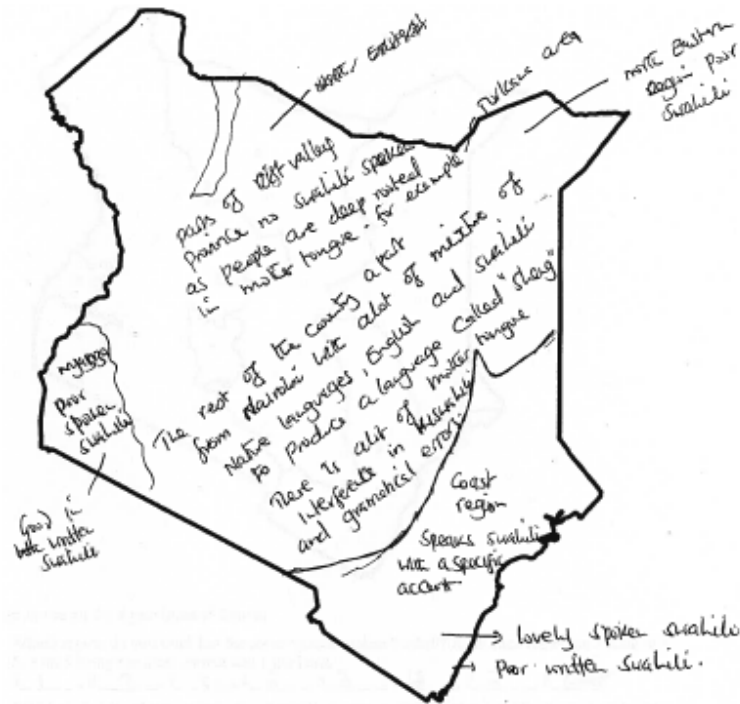 north Eastern
region poor
swahili
Turkana area
parts of Rift valley
Province no swahili spoken
as people are deep rooted
in mother tongue - for example
The rest of the country apart
from Nairobi with alot of mixture of
Native languages, English and swahili
to Produce a language called "sheng"
There is alot of mother tongue
interference in kiswahili
and gramatical errors.
NYANZA
poor
spoken
swahili
Good in
written
swahili
Coast
region
Speaks swahili
with a specific
accent
lovely spoken swahili
Poor written swahili.